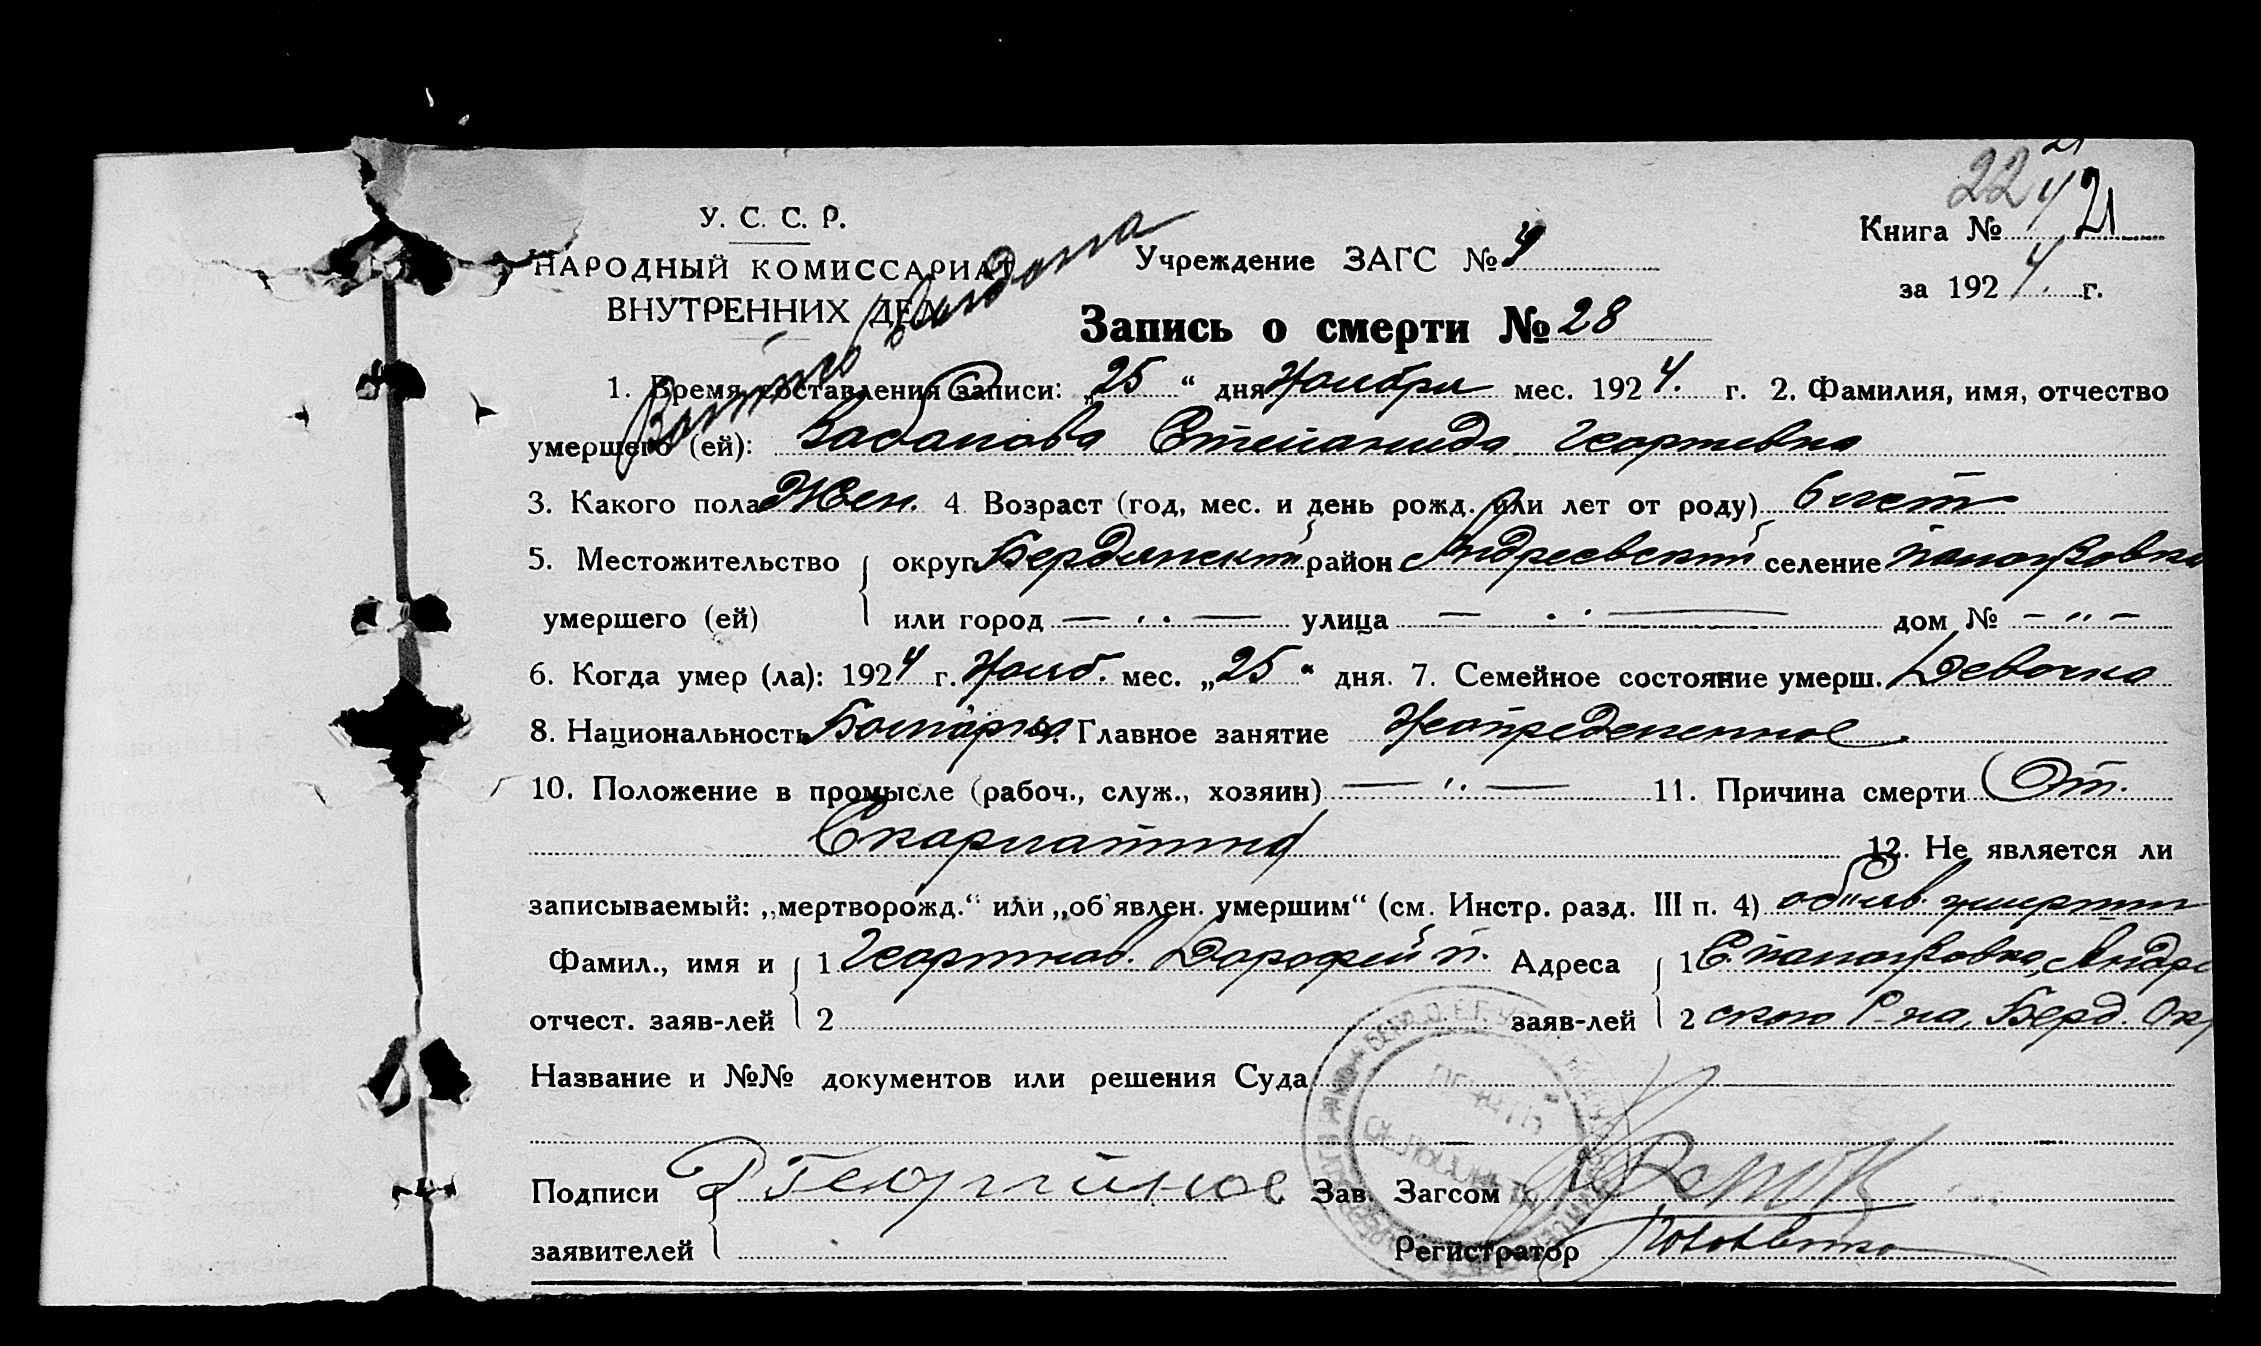 22 21
У. С. С. Р.
НАРОДНЫЙ КОМИССАРИАТ
ВНУТРЕННИХ ДЕЛ
Учреждение ЗАГС № 4
Книга № 21
за 1924. г.
Запись о смерти № 28
1. Время составления записи: „25 “ дня Ноября мес. 1924. г. 2. Фамилия, имя, отчество
умершего (ей): Степанида Георгиевна
3. Какого пола Жен. 4 Возраст (год, мес. и день рожд. или лет от роду) 6 лет
5. Местожительство округ Бердянский район Андреевский селение
умершего (ей) или город — . . — улица — . . — дом № — „ —
6. Когда умер (ла): 1924 г. Нояб. мес. „25 “ дня. 7. Семейное состояние умерш. Девочка
8. Национальность Болгарка 9. Главное занятие Неопределенное.
10. Положение в промысле (рабоч., служ., хозяин) — „ — 11. Причина смерти От.
Скарлатины 12. Не является ли
записываемый: „мертворожд.“ или „об'явлен. умершим“ (см. Инстр. разд. III п. 4)
Фамил., имя и 1 Дорофей П. Адреса 1 С. Андре
отчест. заяв-лей 2 заяв-лей 2 ского Р-на, Берд. Окр
Название и №№ документов или решения Суда
Подписи Д Георгинов Зав. Загсом
заявителей Регистратор
ПЕЧАТЬ